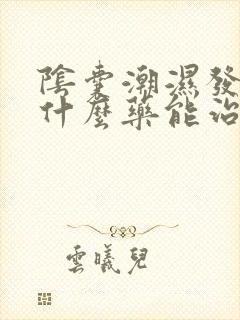 陰囊潮濕發
什麼藥能治
雲曦兒